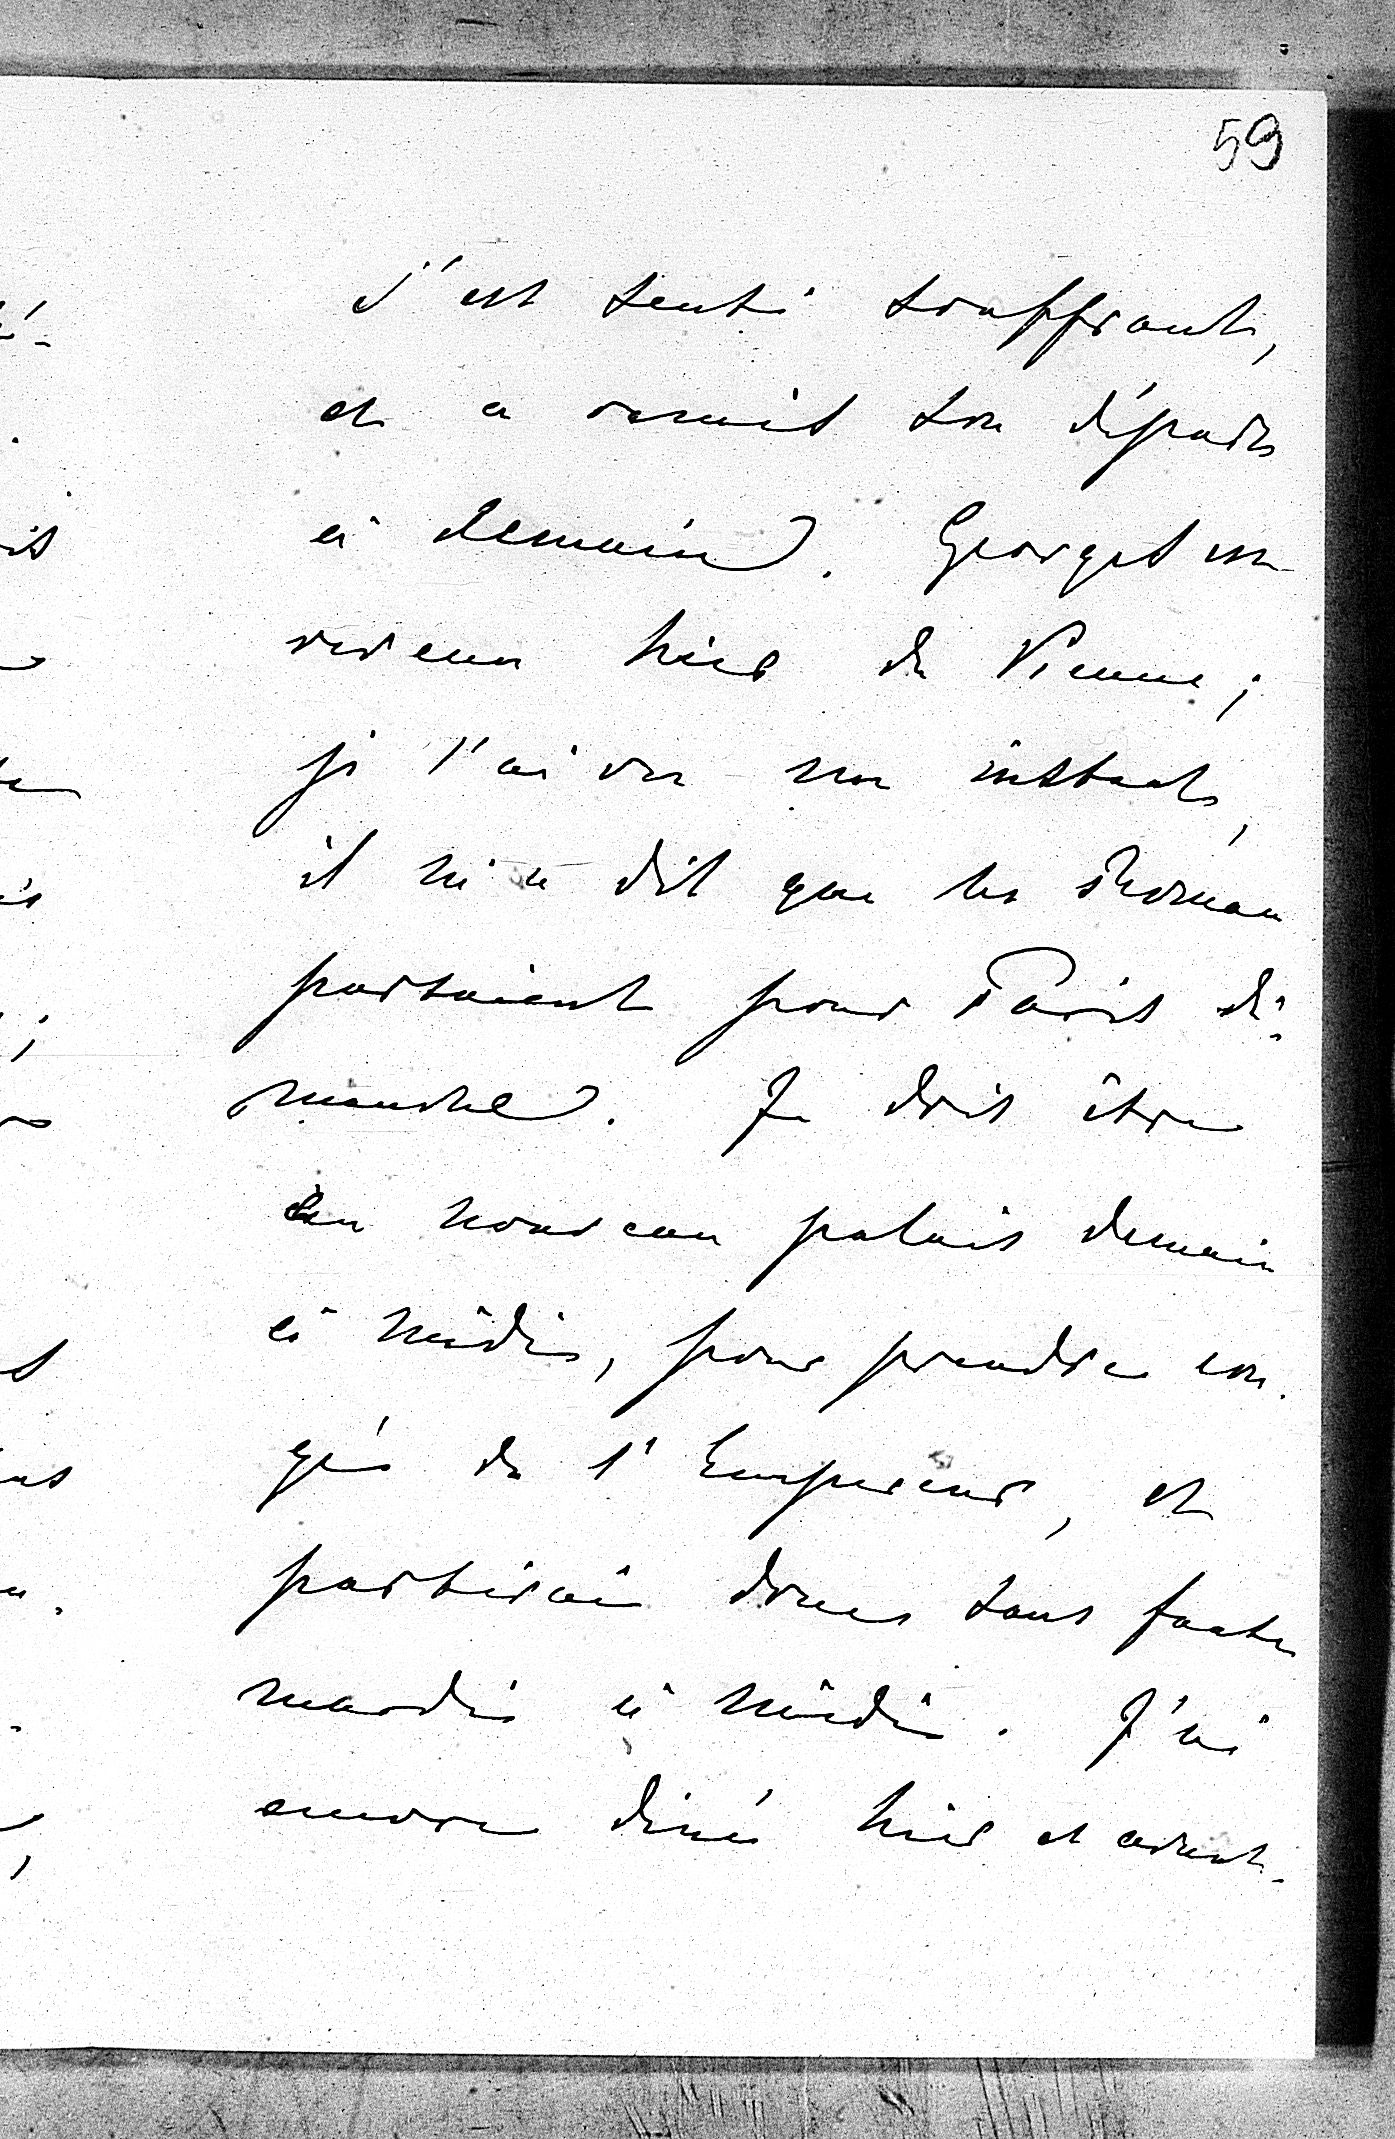 59
s'est senti souffrant,
et a remis son départ
à demain. Georges est
revenu hier de Vienne ;
je l'ai vu un instant,
il m'a dit que les
partaient pour Paris di-
manche. Je dois être
au nouveau palais demain
à midi, pour prendre con-
gé de l'Empereur, et
partirai donc sans faute
mardi à midi. J'ai
encore diné hier et avant-